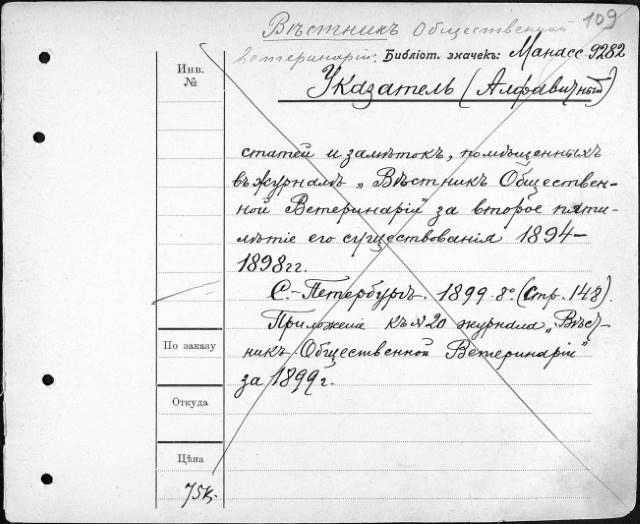 Вѣстникъ Общественной 109
ветеринаріи. Библіот. значекъ: Манасс. 9282
Инв.
№
Указатель (Алфавитный)
статей и замѣтокъ, помѣщенныхъ
въ журналѣ „Вѣстникъ Обществен-
ной Ветеринаріи" за второе пяти-
лѣтіе его существованія 1894–
1898 гг.
С.-Петербургъ. 1899. 8º. (стр. 148).
Приложеніе къ № 20 журнала „Вѣст-
никъ Общественной Ветеринаріи"
за 1899 г.
По заказу
Откуда
Цѣна
75к.